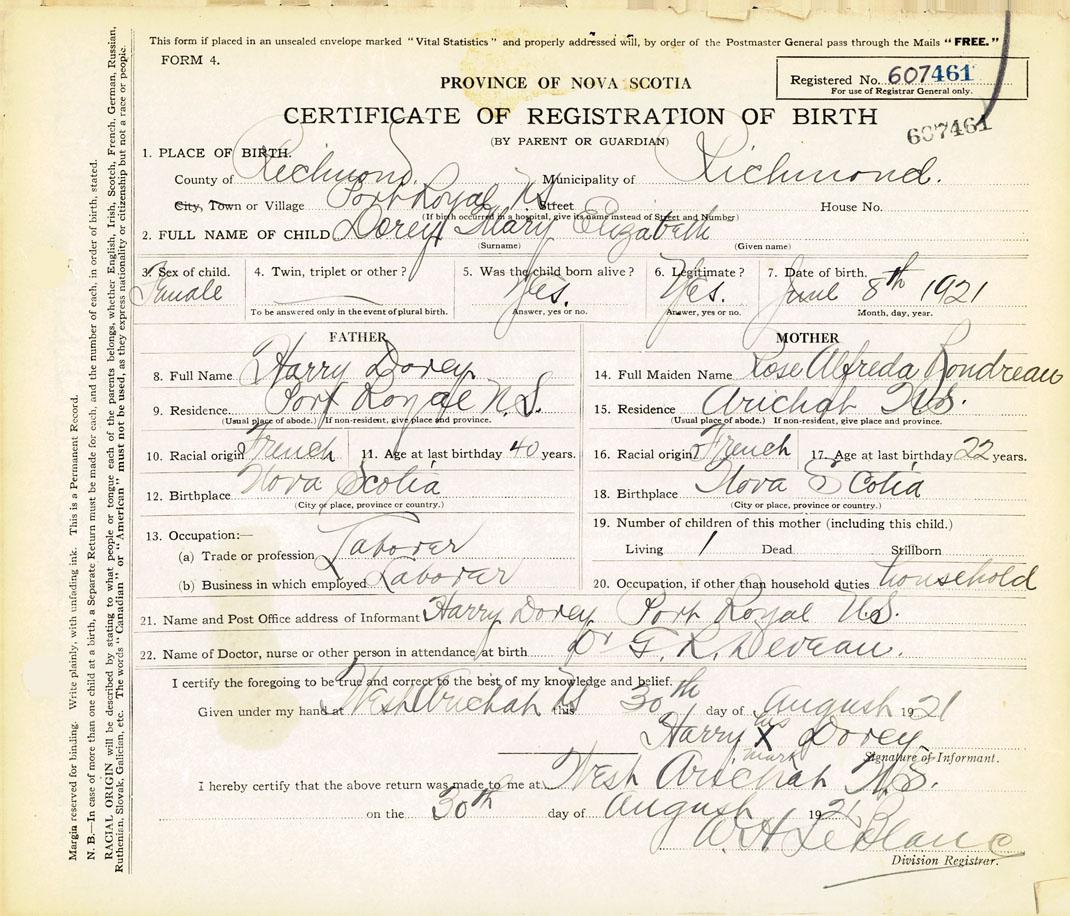 This form if placed in an unsealed envelope marked "Vital Statistics" and properly addressed will, by order of the Postmaster General pass through the Mails "FREE."
FORM 4.
PROVINCE OF NOVA SCOTIA
Registered No. 607461
For use of Registrar General only.
CERTIFICATE OF REGISTRATION OF BIRTH
607461
(BY PARENT OR GUARDIAN)
1. PLACE OF BIRTH.
County of Richmond. Municipality of Richmond.
City, Town or Village Port Royal N.S. Street House No.
(If birth occurred in a hospital, give its name instead of Street and Number)
2. FULL NAME OF CHILD Dorey Mary Elizabeth
(Surname) (Given name)
3. Sex of child. 4. Twin, triplet or other? 5. Was the child born alive? 6. Legitimate? 7. Date of birth.
Female Yes. Yes. June 8th 1921
To be answered only in the event of plural birth. Answer, yes or no. Answer, yes or no. Month, day, year.
FATHER
8. Full Name Harry Dorey
9. Residence Port Royal N.S.
(Usual place of abode.) If non-resident, give place and province.
10. Racial origin French 11. Age at last birthday 40 years.
12. Birthplace Nova Scotia
(City or place, province or country.)
13. Occupation:—
(a) Trade or profession Laborar
(b) Business in which employed Laborar
MOTHER
14. Full Maiden Name Rose Alfreda Bondreau
15. Residence Arichat N.S.
(Usual place of abode.) If non-resident, give place and province.
16. Racial origin French 17. Age at last birthday 22 years.
18. Birthplace Nova Scotia
(City or place, province or country.)
19. Number of children of this mother (including this child.)
Living 1 Dead Stillborn
20. Occupation, if other than household duties household
21. Name and Post Office address of Informant Harry Dorey Port Royal N.S.
22. Name of Doctor, nurse or other person in attendance at birth Dr G. R. Deveau.
I certify the foregoing to be true and correct to the best of my knowledge and belief.
Given under my hand at West Arichat NS this 30th day of August 1921
Harry his X mark Dorey
Signature of Informant.
I hereby certify that the above return was made to me at West Arichat N.S.
on the 30th day of August 1921
W. H. LeBlanc
Division Registrar.
Margin reserved for binding. Write plainly, with unfading ink. This is a Permanent Record.
N. B.—In case of more than one child at a birth, a Separate Return must be made for each, and the number of each, in order of birth, stated.
RACIAL ORIGIN will be described by stating to what people or tongue each of the parents belongs, whether English, Irish, Scotch, French, German, Russian,
Ruthenian, Slovak, Galician, etc. The words "Canadian" or "American" must not be used, as they express nationality or citizenship but not a race or people.